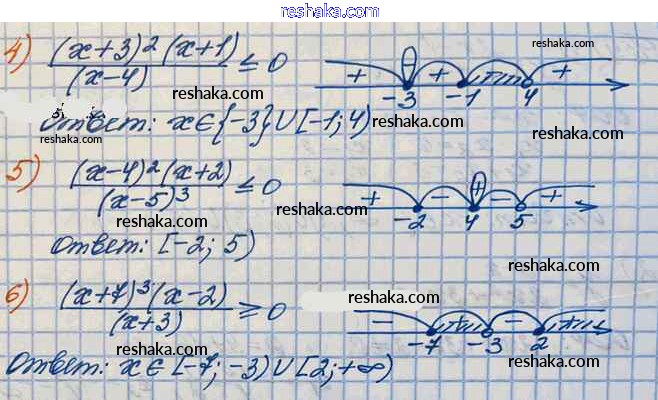 reshaka.com
4) (x+3)²(x+1)/(x-4) ≤ 0 + + + -3 -1 4
reshaka.com
reshaka.com
reshaka.com
Ответ: x∈{-3}∪[-1; 4)
reshaka.com
reshaka.com
5) (x-4)²(x+2)/(x-5)³ ≤ 0 + - + - + -2 4 5
reshaka.com
reshaka.com
reshaka.com
reshaka.com
Ответ: [-2; 5)
reshaka.com
6) (x+7)³(x-2)/(x+3) ≥ 0 - + - + -7 -3 2
reshaka.com
reshaka.com
reshaka.com
reshaka.com
Ответ: x∈[-7; -3)∪[2; +∞)